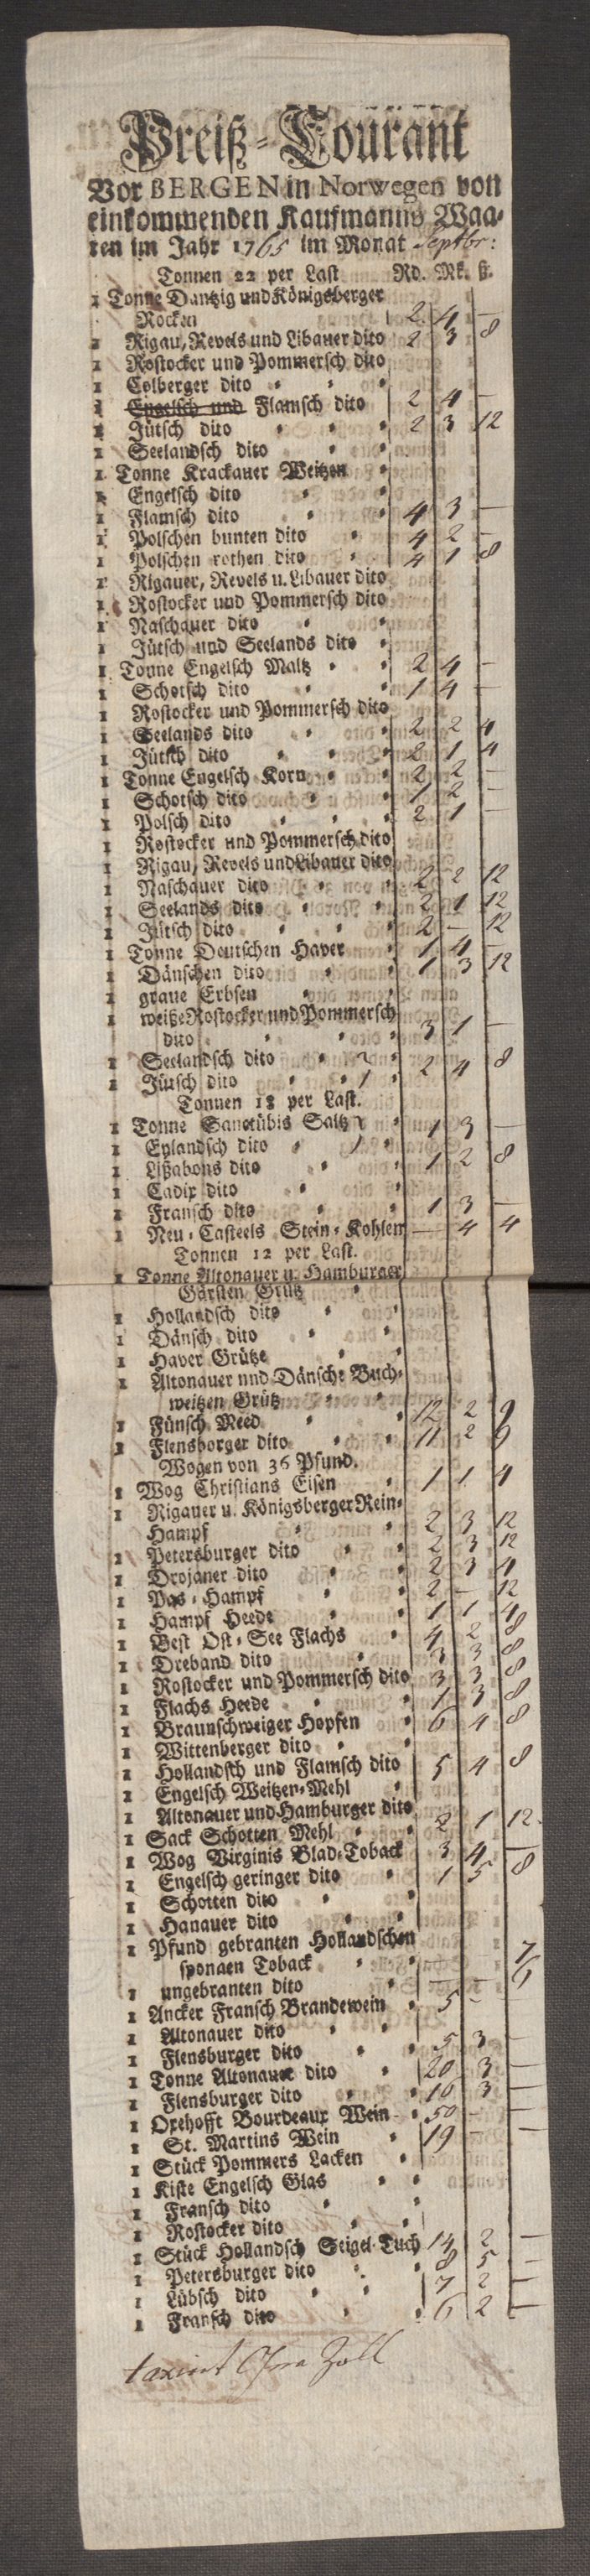 Preiß-Courant
Vor BERGEN in Norwegen von
einkommenden Kaufmanns Waa-
ren im Jahr 1765 im Monat Septbr:
Tonnen 22 per Last Rd. Mk. ß.
1 Tonne Dantzig und Königsberger
Rocken 2 4 —
1 Rigau, Revels und Libauer dito 2 3 8
1 Rostocker und Pommersch dito
1 Colberger dito
1 Engelsch und Flamsch dito 2 4 —
1 Jütsch dito 2 3 12
1 Seelandsch dito
1 Tonne Krackauer Weitzen
1 Engelsch dito
1 Flamsch dito 4 3 —
1 Polschen bunten dito 4 2 —
1 Polschen rothen dito 4 1 8
1 Rigauer, Revels u. Libauer dito
1 Rostocker und Pommersch dito
1 Naschauer dito
1 Jütsch und Seelands dito
1 Tonne Engelsch Maltz 2 4 —
1 Schotsch dito 1 4 —
1 Rostocker und Pommersch dito
1 Seelands dito 2 2 4
1 Jütsch dito 2 1 4
1 Tonne Engelsch Korn 2 2 —
1 Schotsch dito 1 2 —
1 Polsch dito 2 1 —
1 Rostocker und Pommersch dito
1 Rigau, Revels und Libauer dito
1 Naschauer dito 2 2 12
1 Seelands dito 2 1 12
1 Jütsch dito 2 — 12
1 Tonne Deutschen Haver 1 4 —
1 Dänschen dito 1 3 12
1 graue Erbsen
1 weitze Rostocker und Pommersch
dito 3 1 —
1 Seelandsch dito
1 Jütsch dito 2 4 8
Tonnen 18 per Last.
1 Tonne Sanctübis Saltz
1 Eylandsch dito 1 3 —
1 Lißabons dito 1 2 8
1 Cadix dito
1 Fransch dito 1 3 —
1 Neu-Casteels Stein-Kohlen — 4 4
Tonnen 12 per Last.
1 Tonne Altonauer u. Hamburger
Gärsten Grütz
1 Hollandsch dito
1 Dänsch dito
1 Haver Grütze
1 Altonauer und Dänsche Buch-
weitzen Grütz
1 Fünsch Meed 12 2 9
1 Flensborger dito 11 2 9
Wogen von 36 Pfund.
1 Wog Christians Eisen 1 1 4
1 Rigauer u. Königsberger Rein-
Hampf 2 3 12
1 Petersburger dito 2 3 12
1 Drojaner dito 2 3 4
1 Pas-Hampf 2 — 12
1 Hampf Heede 1 1 4
1 Best Ost-See Flachs 4 2 8
1 Dreband dito 3 3 8
1 Rostocker und Pommersch dito 3 3 8
1 Flachs Heede 1 3 8
1 Braunschweiger Hopfen 6 4 8
1 Wittenberger dito
1 Hollandsch und Flamsch dito 5 4 8
1 Engelsch Weitzen-Mehl
1 Altonauer und Hamburger dito
1 Sack Schotten Mehl 2 1 12
1 Wog Virginis Blad-Toback 3 4 —
1 Engelsch geringer dito 1 5 8
1 Schotten dito
1 Hanauer dito
1 Pfund gebranten Hollandschen
sponaen Toback 7
1 ungebranten dito — — 6
1 Ancker Fransch Brandewein 5 —
1 Altonauer dito
1 Flensburger dito 5 3 —
1 Tonne Altonauer dito 20 3 —
1 Flensburger dito 18 3 —
1 Oxehofft Bourdeaux Wein 50 — —
1 St. Martins Wein 19 — —
1 Stück Pommers Lacken
1 Kiste Engelsch Glas
1 Fransch dito
1 Rostocker dito
1 Stück Hollandsch Seigel-Tuch 14 2 —
1 Petersburger dito 8 5 —
1 Lübsch dito 7 2 —
1 Fransch dito 6 2 —
Zoll